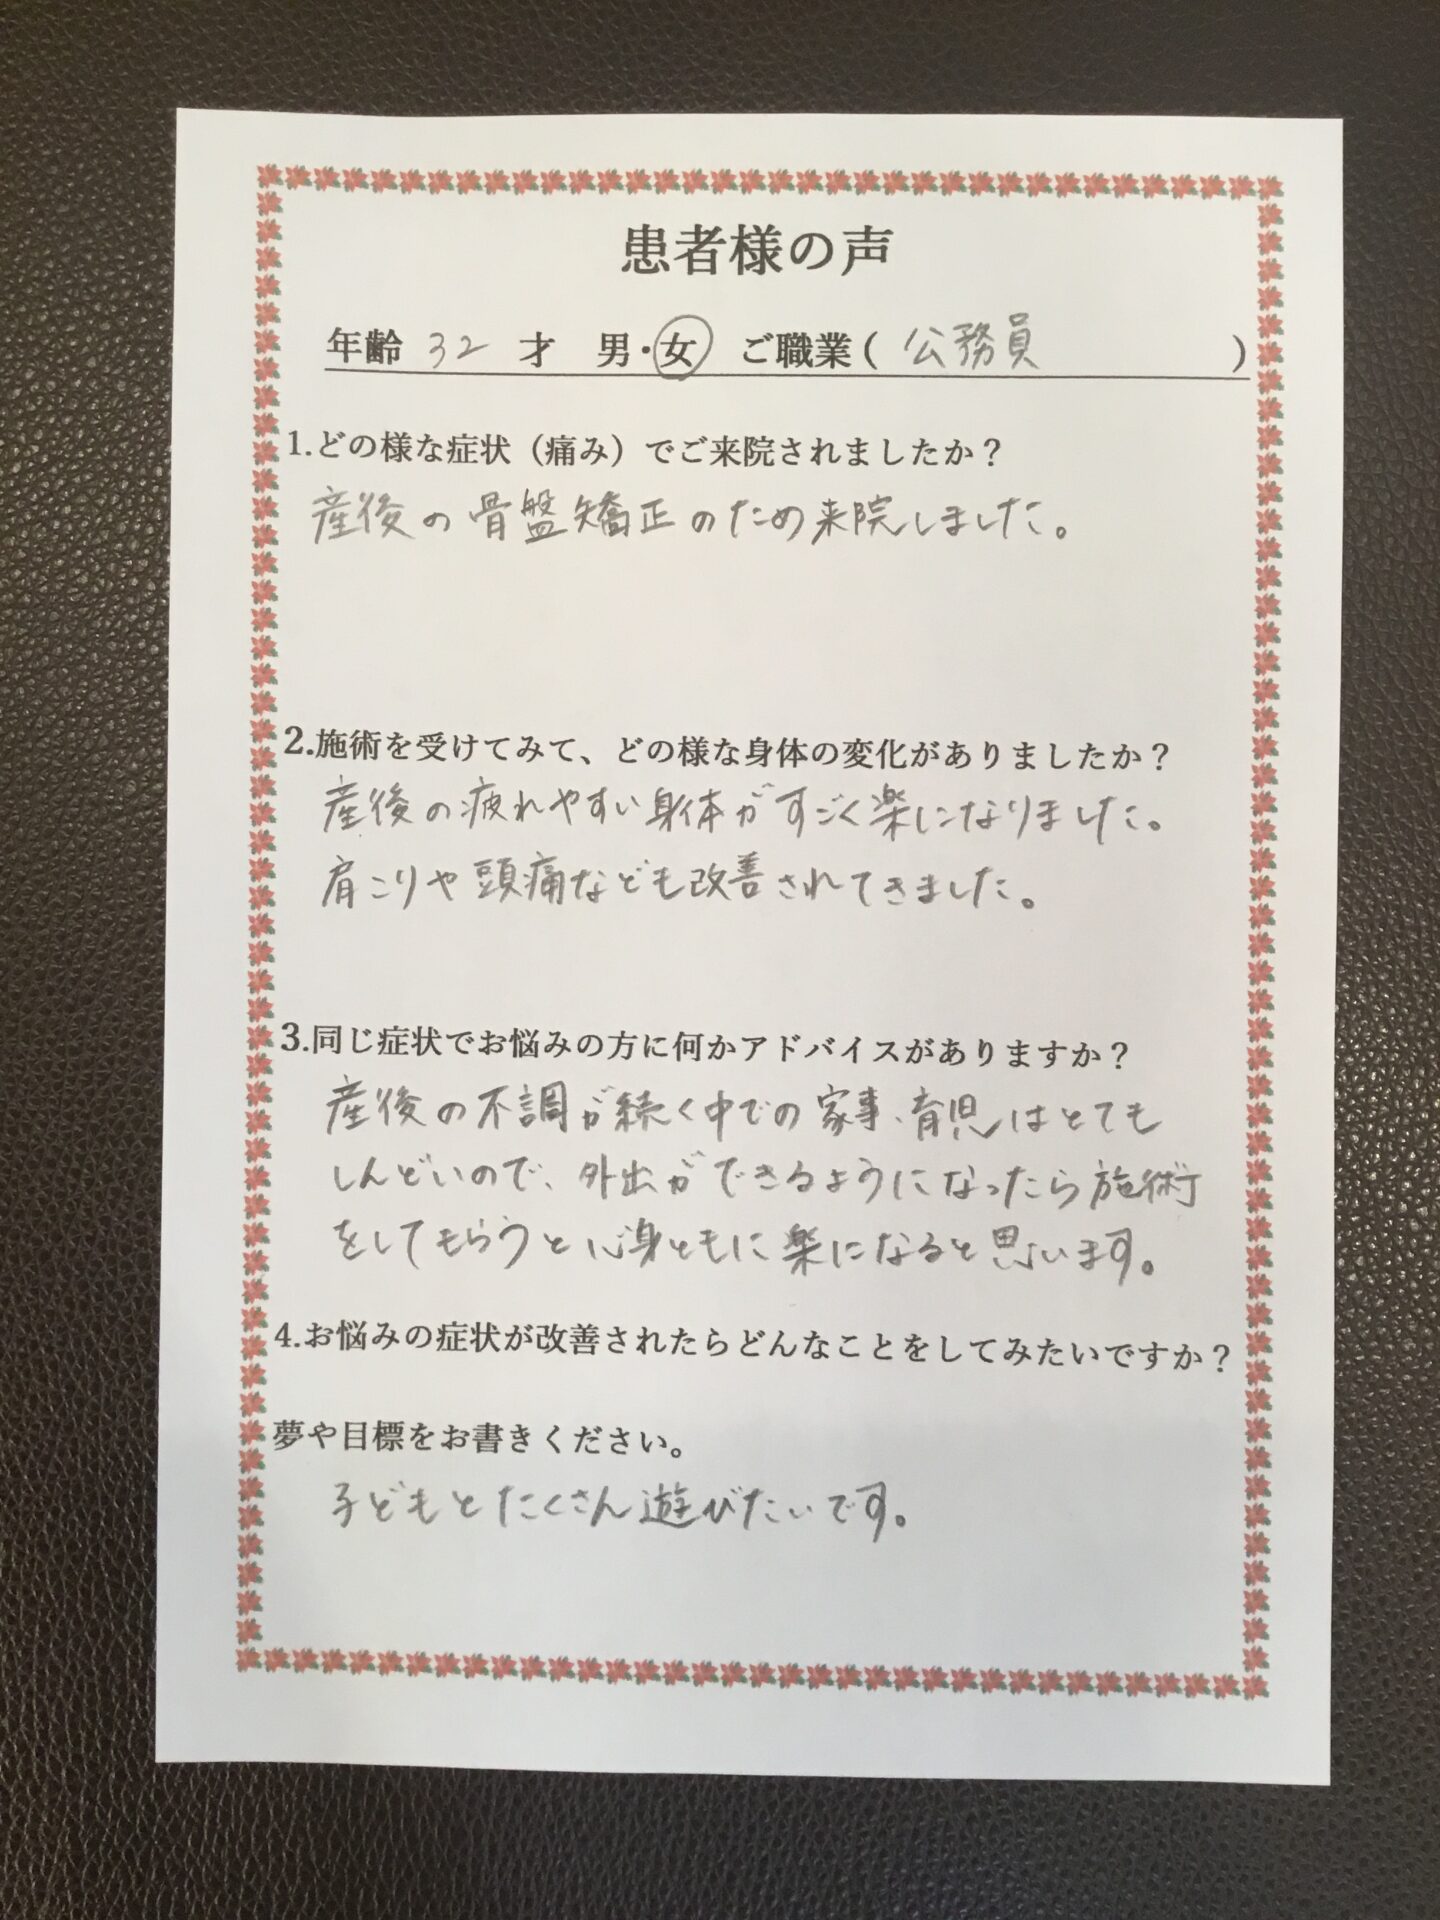 患者様の声
年齢 32 才 男・女 ご職業( 公務員 )
1.どの様な症状（痛み）でご来院されましたか？
産後の骨盤矯正のため来院しました。
2.施術を受けてみて、どの様な身体の変化がありましたか？
産後の疲れやすい身体がすごく楽になりました。
肩こりや頭痛なども改善されてきました。
3.同じ症状でお悩みの方に何かアドバイスがありますか？
産後の不調が続く中での家事、育児はとても
しんどいので、外出ができるようになったら施術
をしてもらうと心身ともに楽になると思います。
4.お悩みの症状が改善されたらどんなことをしてみたいですか？
夢や目標をお書きください。
子どもとたくさん遊びたいです。